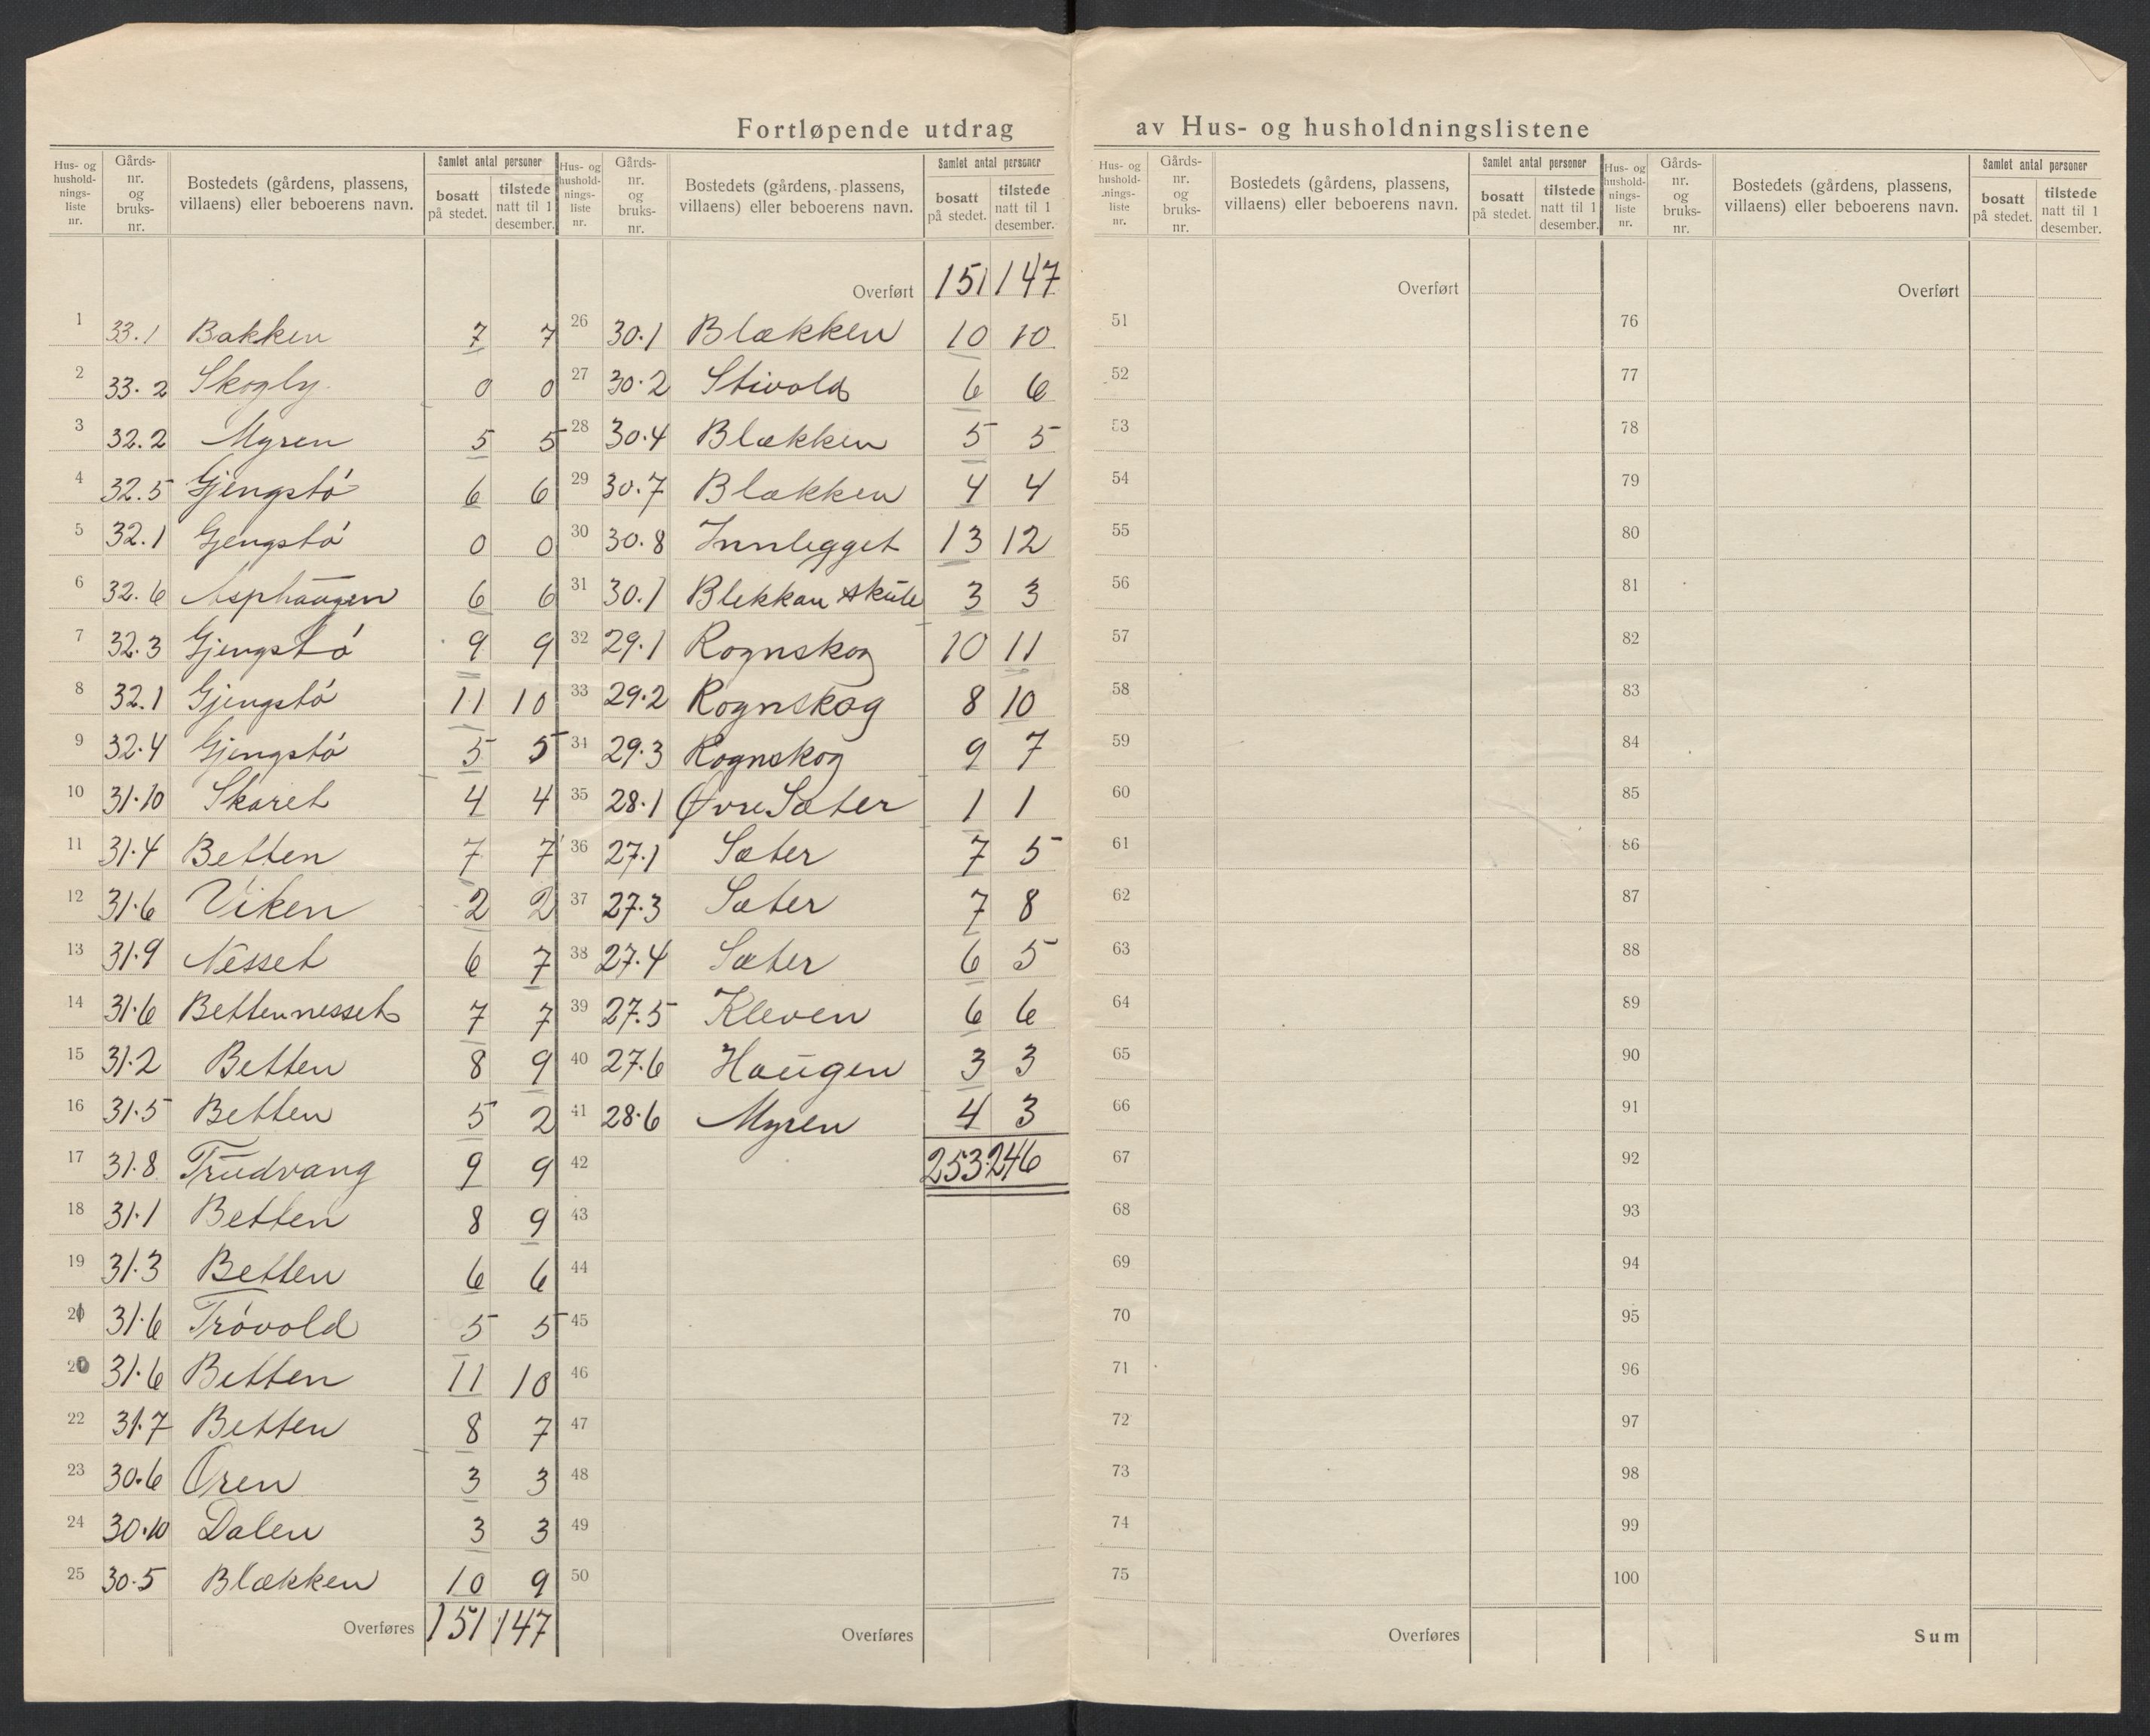 Fortløpende utdrag av Hus- og husholdningslistene
Hus- og hushold-nings-liste nr. | Gårds-nr. og bruks-nr. | Bostedets (gårdens, plassens, villaens) eller beboerens navn. | Samlet antal personer | bosatt på stedet. | tilstede natt til 1 desember.
1 33.1 Bakken 7 7
2 33.2 Skogly 0 0
3 32.2 Myren 5 5
4 32.5 Gjengstó 6 6
5 32.1 Gjengstó 0 0
6 32.6 Asphaugen 6 6
7 32.3 Gjengstó 9 9
8 32.1 Gjengstó 11 10
9 32.4 Gjengstó 5 5
10 31.10 Skaret 4 4
11 31.4 Betten 7 7
12 31.6 Viken 2 2
13 31.9 Nesset 6 7
14 31.6 Bettennesset 7 7
15 31.2 Betten 8 9
16 31.5 Betten 5 2
17 31.8 Trudvang 9 9
18 31.1 Betten 8 9
19 31.3 Betten 6 6
21 31.6 Tróvold 5 5
20 31.6 Betten 11 10
22 31.7 Betten 8 7
23 30.6 Oren 3 3
24 30.10 Dalen 3 3
25 30.5 Blækken 10 9
Overføres 151 147
Hus- og hushold-nings-liste nr. | Gårds-nr. og bruks-nr. | Bostedets (gårdens, plassens, villaens) eller beboerens navn. | Samlet antal personer | bosatt på stedet. | tilstede natt til 1 desember.
Overført 151 147
26 30.1 Blækken 10 10
27 30.2 Stivold 6 6
28 30.4 Blækken 5 5
29 30.7 Blækken 4 4
30 30.8 Innlegget 13 12
31 30.1 Blekkan skule 3 3
32 29.1 Rognskog 10 11
33 29.2 Rognskog 8 10
34 29.3 Rognskog 9 7
35 28.1 Øvre Sæter 1 1
36 27.1 Sæter 7 5
37 27.3 Sæter 7 8
38 27.4 Sæter 6 5
39 27.5 Kleven 6 6
40 27.6 Haugen 3 3
41 28.6 Myren 4 3
42 253 246
43
44
45
46
47
48
49
50
Overføres
Hus- og hushold-nings-liste nr. | Gårds-nr. og bruks-nr. | Bostedets (gårdens, plassens, villaens) eller beboerens navn. | Samlet antal personer | bosatt på stedet. | tilstede natt til 1 desember.
Overført
51
52
53
54
55
56
57
58
59
60
61
62
63
64
65
66
67
68
69
70
71
72
73
74
75
Overføres
Hus- og hushold-nings-liste nr. | Gårds-nr. og bruks-nr. | Bostedets (gårdens, plassens, villaens) eller beboerens navn. | Samlet antal personer | bosatt på stedet. | tilstede natt til 1 desember.
Overført
76
77
78
79
80
81
82
83
84
85
86
87
88
89
90
91
92
93
94
95
96
97
98
99
100
Sum